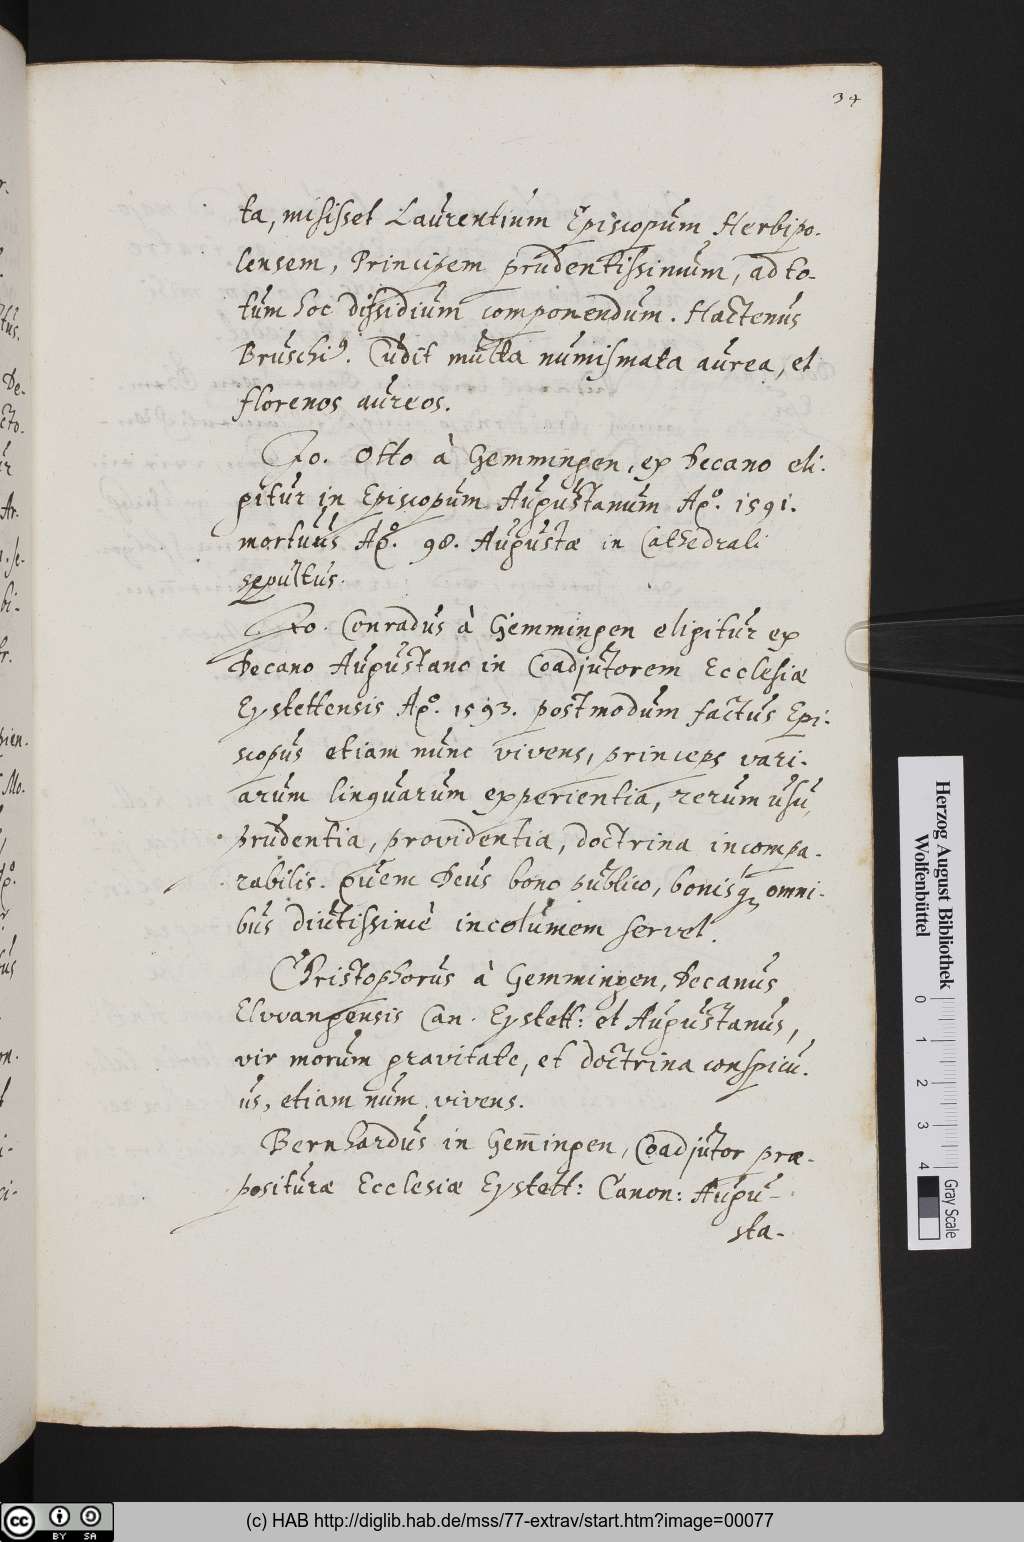 34
ta, misisset Laurentium Episcopum Herbipo-
lensem, Principem prudentissimum, ad to-
tum hoc dissidium componendum. Hactenus
Bruschi9. Cudit multa numismata aurea, et
florenos aureos.
Jo. Otto à Gemmingen, ex Decano eli-
gitur in Episcopum Augustanum Aº. 1591.
mortuus Aº. 98. Augustæ in Cathedrali
sepultus.
Jo. Conradus à Gemmingen eligitur ex
Decano Augustano in Coadjutorem Ecclesiæ
Eystettensis Aº. 1593. postmodum factus Epi-
scopus etiam nunc vivens, princeps vari-
arum linguarum experientia, rerum usu,
prudentia, providentia, doctrina incompa-
rabilis. quem Deus bono publico, bonisq3 omni-
bus diutissimè incolumem servet.
Christophorus à Gemmingen, Decanus
Elwangensis Can. Eystett: et Augustanus,
vir morum gravitate, et doctrina conspicu-
us, etiam num vivens.
Bernhardus in Gem̄ingen, Coadjutor præ-
posituræ Ecclesiæ Eystett: Canon: Augu-
sta-
Herzog August Bibliothek
Wolfenbüttel
0 1 2 3 4
Gray Scale
cc BY SA
(c) HAB http://diglib.hab.de/mss/77-extrav/start.htm?image=00077